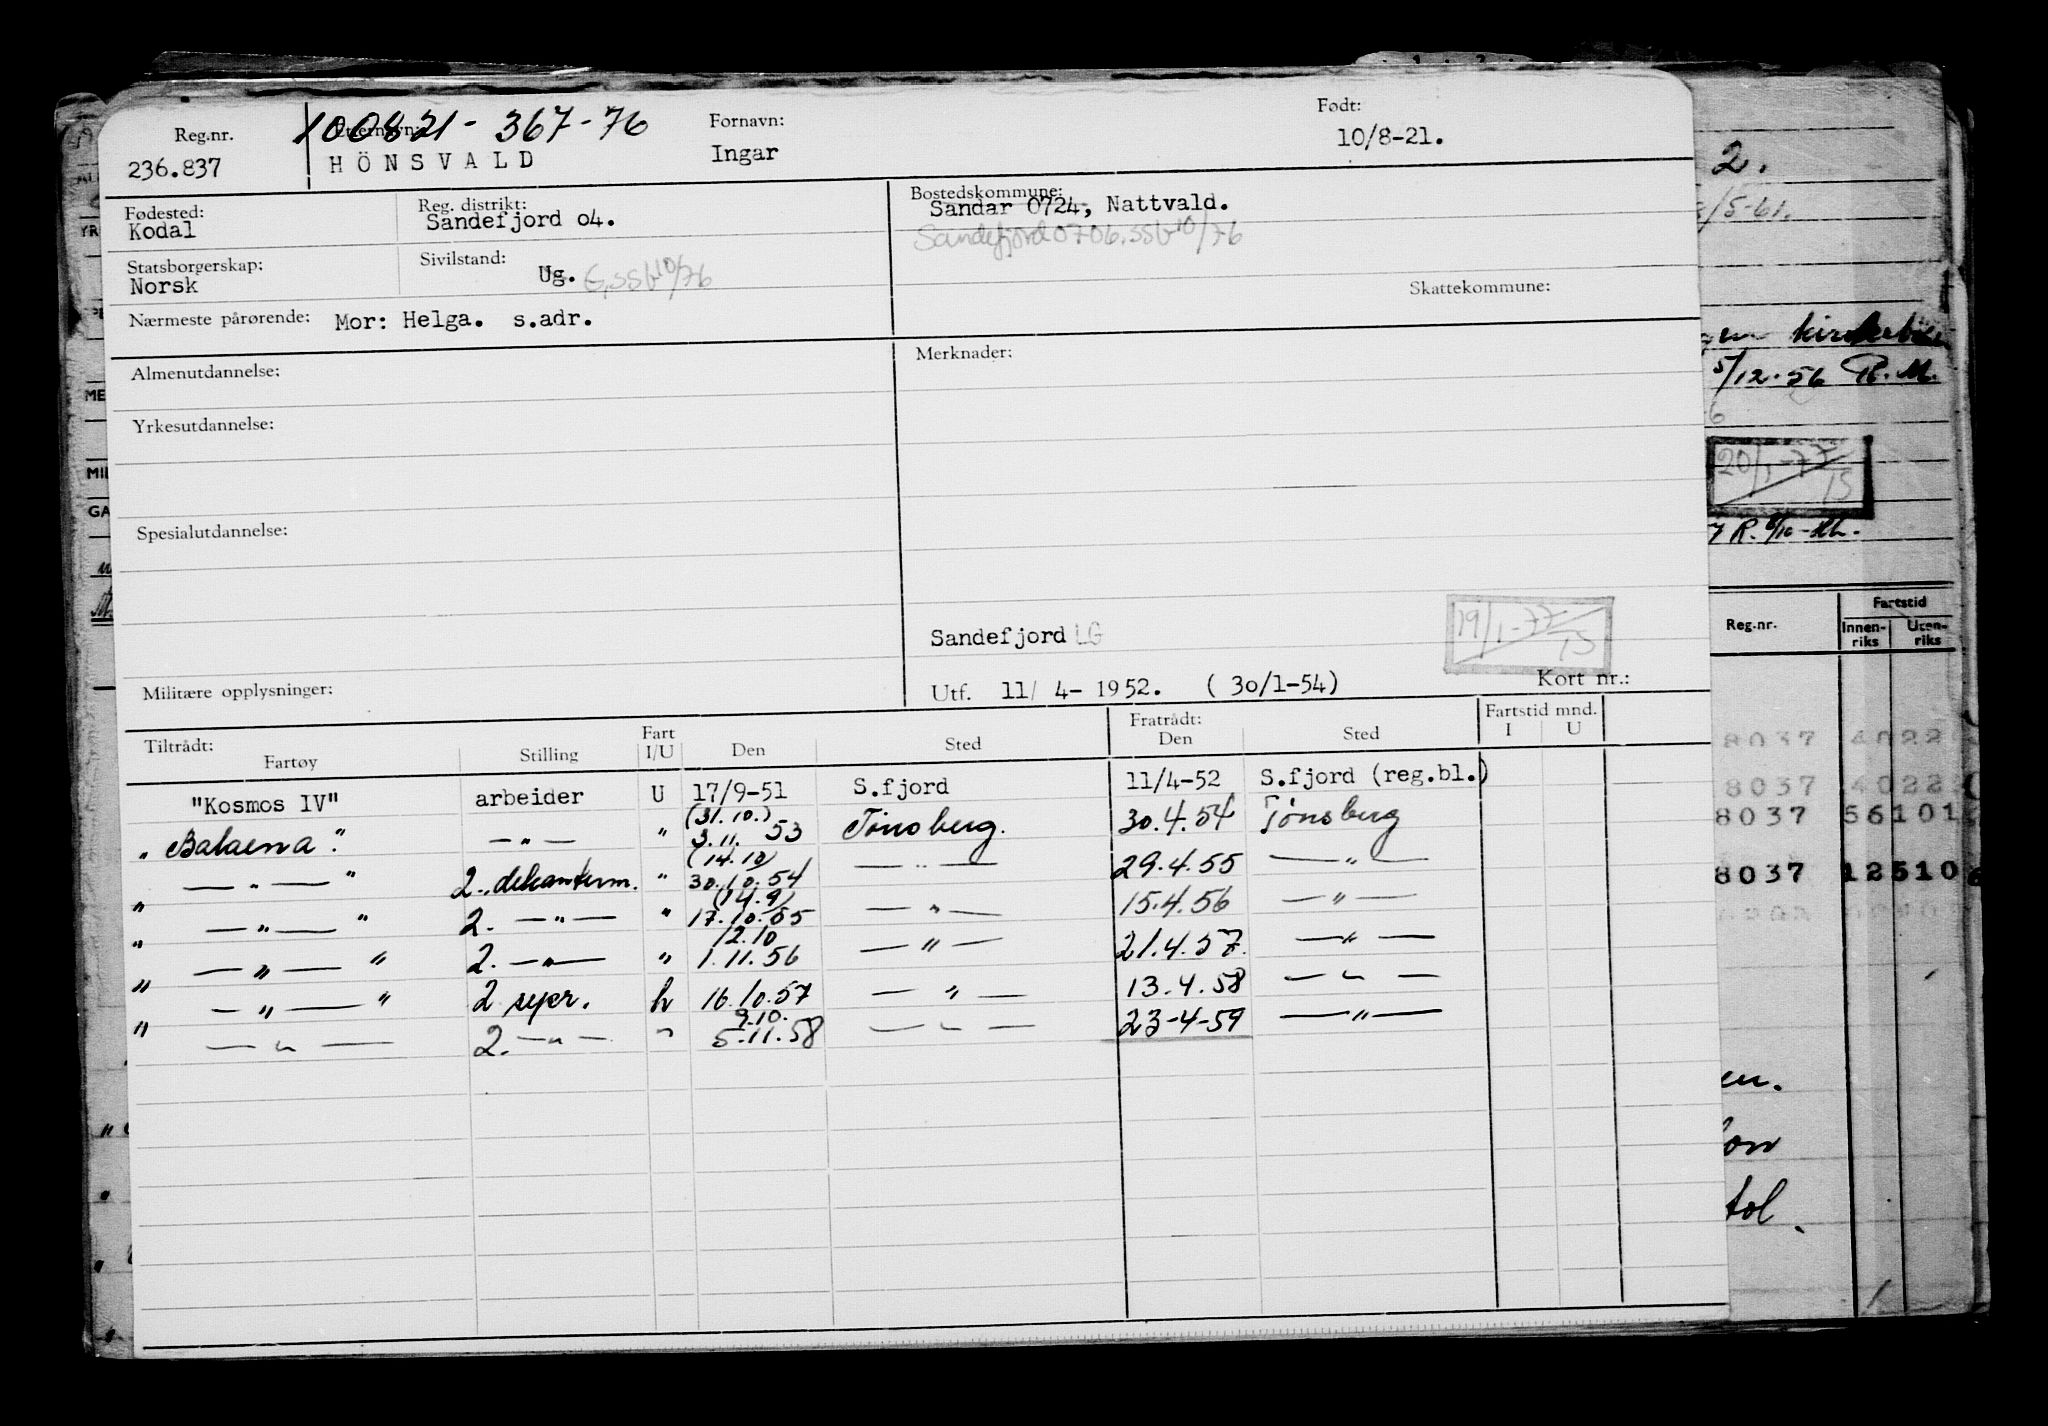 Reg.nr. Etternavn: 100821-367-76 Fornavn: Født:
236.837 HÖNSVALD Ingar 10/8-21.
Fødested: Reg. distrikt: Bostedskommune:
Kodal Sandefjord 04. Sandar 0724, Nattvald.
Sandefjord 0706. SSB 10/76
Statsborgerskap: Sivilstand:
Norsk Ug. G, SSB 10/76
Skattekommune:
Nærmeste pårørende: Mor: Helga. s.adr.
Almenutdannelse: Merknader:
Yrkesutdannelse:
Spesialutdannelse:
Sandefjord LG 19/1-77 15
Militære opplysninger: Utf. 11/ 4- 1952. ( 30/1-54) Kort nr.:
Tiltrådt: Fratrådt: Fartstid mnd.
Fartøy Stilling Fart I/U Den Sted Den Sted I U
"Kosmos IV" arbeider U 17/9-51 S.fjord 11/4-52 S.fjord (reg.bl.)
„ Balaena." — „ — " (31.10.) 3.11. 53 Tønsberg. 30.4.54 Tønsberg
" — „ — " 2. dekantørm. " (14.10) 30.10.54 — „ — 29.4.55 — " —
" — „ — " 2. — „ — " (14.9) 17.10.55 — „ — 15.4.56 — " —
" — „ — " 2. — „ — " 12.10 1.11.56 — " — 21.4.57. — " —
" — „ — " 2 sepr. h 16.10.57 — " — 13.4.58 — " —
— " — 2. — " — " 9.10. 5.11.58 — " — 23-4-59 — " —
2.
/5-61.
5/12-56 R. M.
20/1-77 15
Fartstid
Reg.nr. Innen-riks Uten-riks
8037 4022
8037 40222
8037 56101
8037 12510
en.
tol.